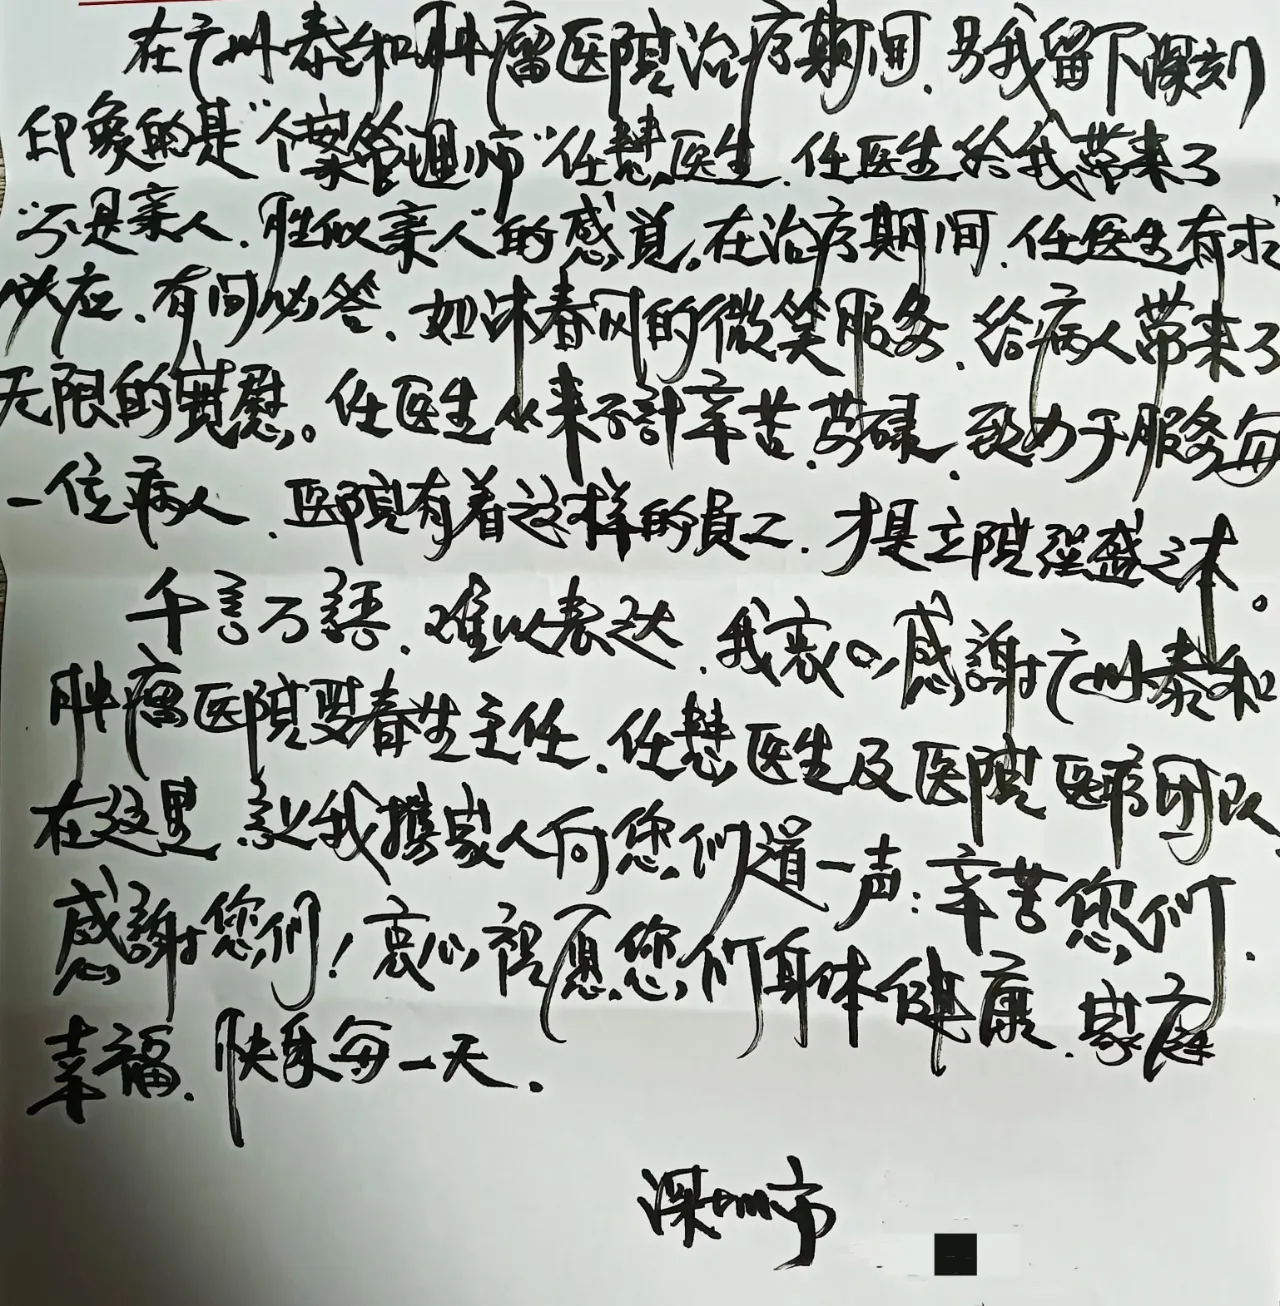 在广州泰和肿瘤医院治疗期间、另我留下深刻
印象的是“个案管理师”任慧医生、任医生给我带来了
“不是亲人、胜似亲人”的感觉。在治疗期间、任医生有求
必应、有问必答、如沐春风的微笑服务、给病人带来了
无限的宽慰。任医生从来不計辛苦、劳碌、致力于服务每
一位病人、医院有着这样的員工、才是立院强盛之本。
千言万語、难以表达、我衷心感謝广州泰和
肿瘤医院罗春生主任、任慧医生及医院医疗团队、
在这里 让我携家人向您们道一声：辛苦您们、
感謝您们！衷心祝愿您们身体健康、家庭
幸福、快乐每一天、
深圳市